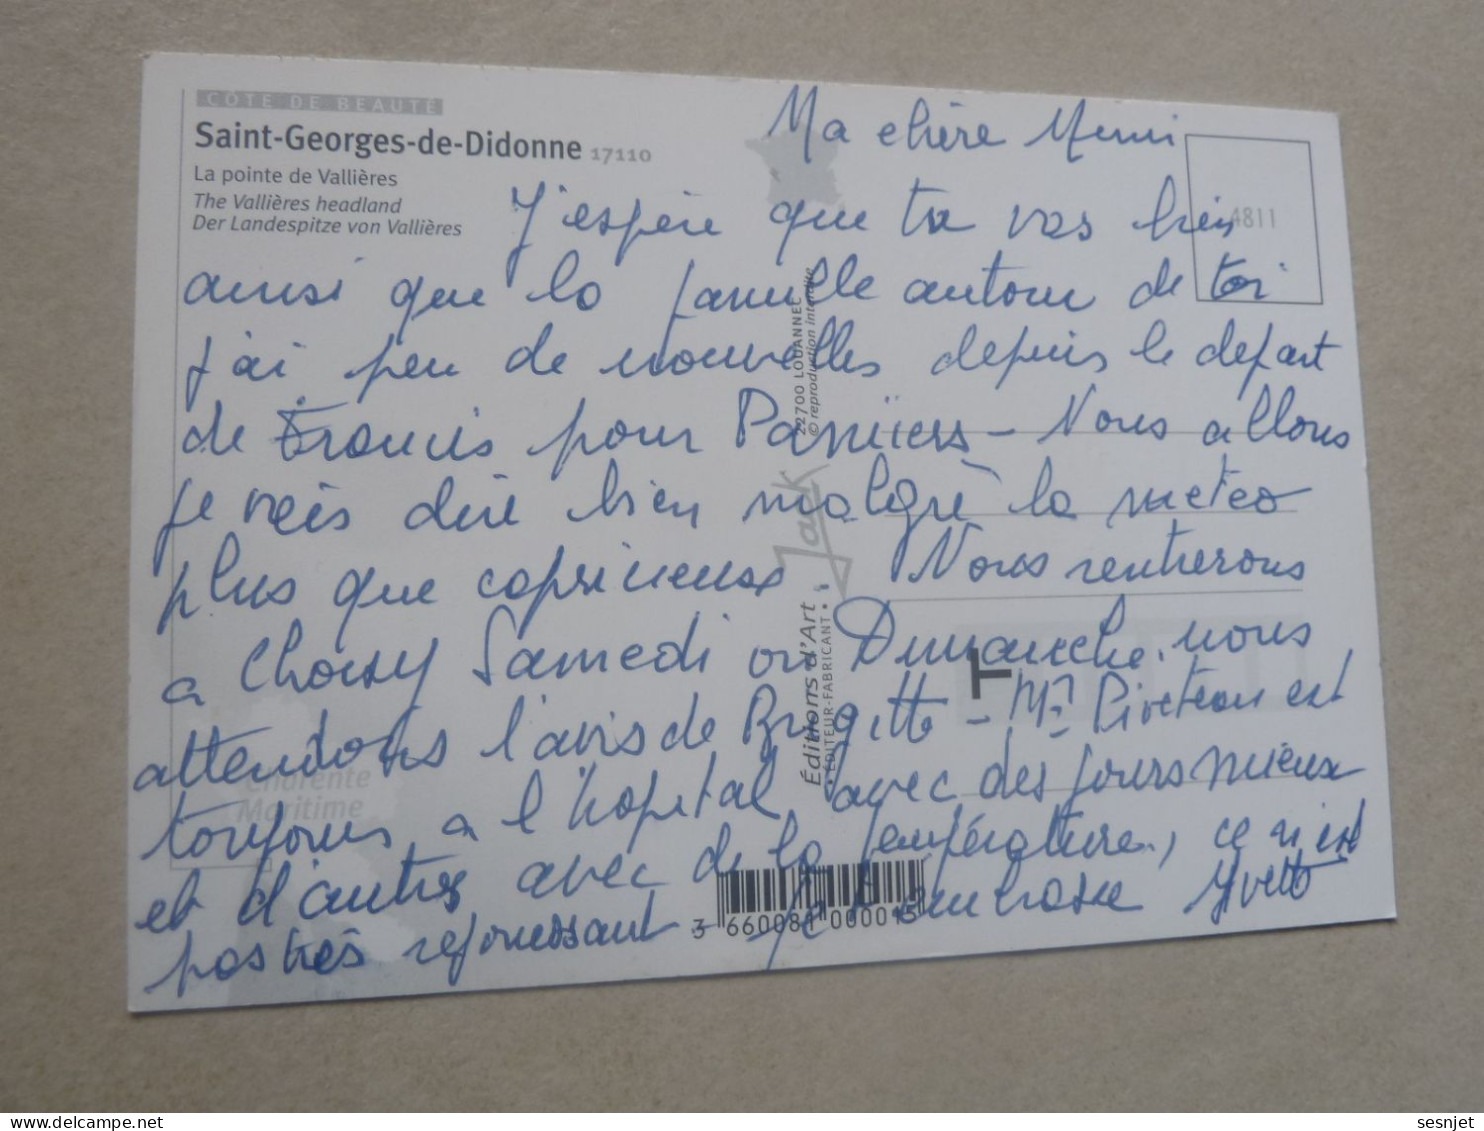 CÔTE DE BEAUTÉ
Saint-Georges-de-Didonne 17110
La pointe de Vallières
The Vallières headland
Der Landespitze von Vallières
4811
Ma chère Mimi
J'espère que tu vas bien
ainsi que la famille autour de toi
j'ai peu de nouvelles depuis le depart
de Francis pour Pamiers - Nous allons
je vais dire bien malgré la meteo
plus que capricieuse Nous rentrerons
a Choisy Samedi ou Dimanche. nous
attendons l'avis de Brigitte - Mr Piveteau est
toujours a l'hopital avec des jours mieux
et d'autres avec de la température, ce n'est
pas très rejouissant - Je t'embrasse Yvette
22700 LOUANNEC
© reproduction interdite
Jack
Éditions d'Art
• ÉDITEUR-FABRICANT •
T
Charente
Maritime
3 660081 000015
sesnjet